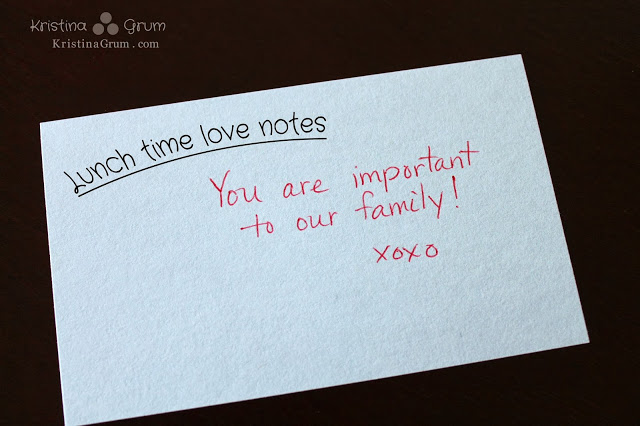 Kristina Grum
KristinaGrum.com
Lunch time love notes
You are important
to our family!
xoxo